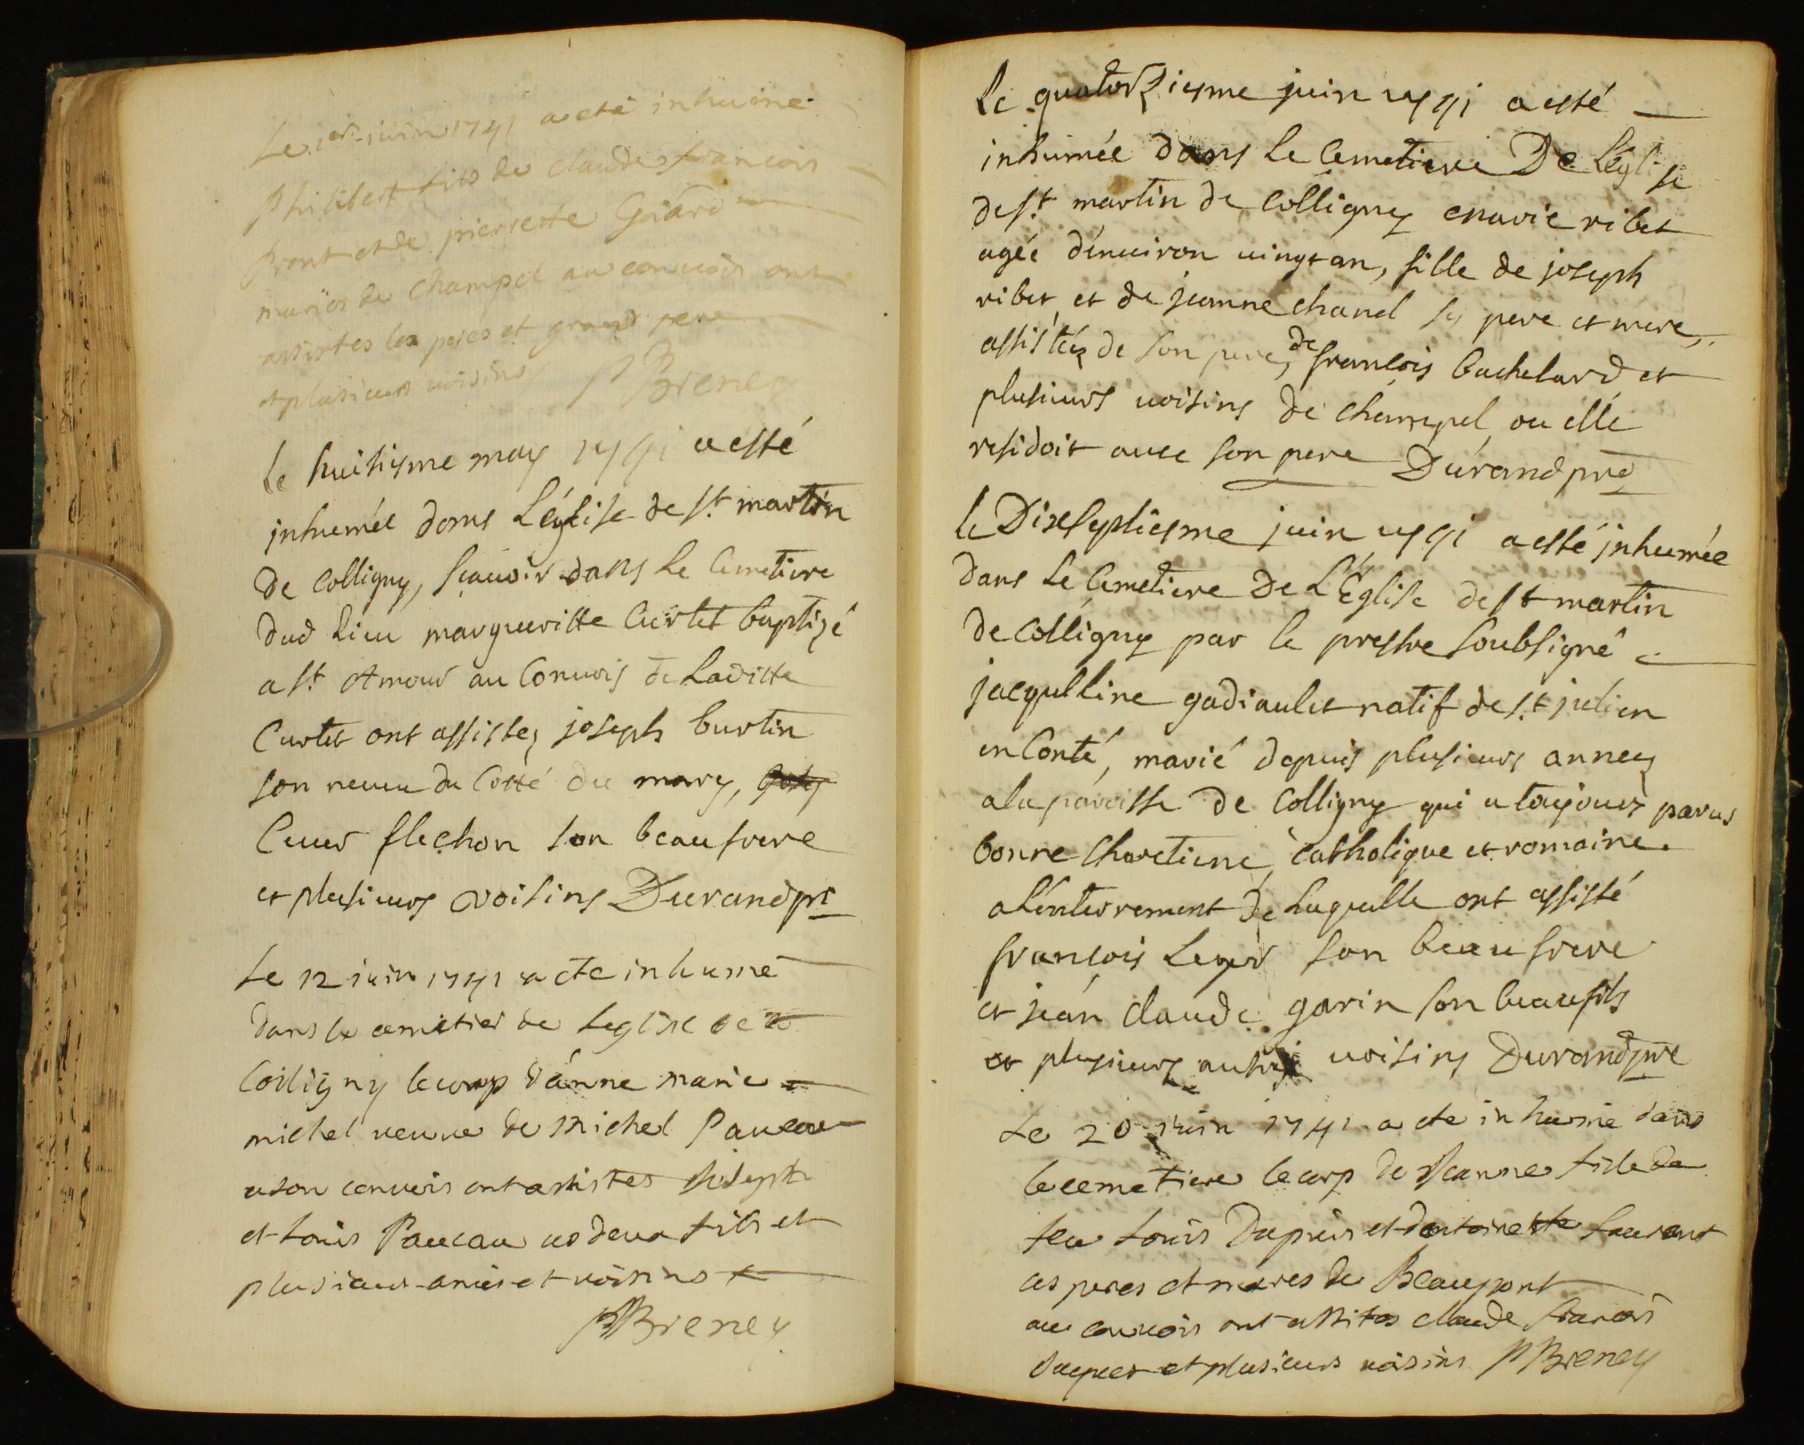 Le 1er juin 1741 a eté inhumé
philibert fils de claude francois
pront et de pierrette Girard
mariés de Champel au convois ont
assistes les peres et grand pere
et plusieurs voisins PBreney
le huitiesme may 1741 a esté
inhumée dans L'église de st martin
De colligny, scauoir dans Le Cimetiere
dud Lieu margueritte Curtet baptizé
a st Amour au Conuois de Laditte
Curtet ont assistez joseph burtin
son neueu du Costé du mary,
flechon son beaufrere
et plusieurs voisins Durand pr
Le 12 juin 1741 a ete inhumé
dans le cemetier de Leglise de
Colligny le corp d'anne marie
michel veuve de Michel Paucau
a son convois ont assistes Joseph
et Louis Paucau ses deux fils et
plusieurs amis et voisins
PBreney
Le quatorziesme juin 1741 a esté
inhumée dans Le Cemetiere De Léglise
de st martin de Colligny ribet
agée d'enuiron vingt an, fille de joseph
ribet, et de jeanne chanel ses pere et mere,
assistéz de son pere, de francois bachelard et
plusieurs voisins de chempel ou elle
residoit avec son pere Durand pre
le Dixseptiesme juin 1741 a esté inhumée
dans Le Cemetiere De L'Église de st martin
de Colligny par le prestre soubsigné
jacqulline gadiaulet natif de st julien
en Conté, marié depuis plusieurs annez
a la paroisse de Colligny qui a toujours parus
bonne Chretiene, catholique et romaine.
a L'enterrement de Laquelle ont assisté
francois Leger son beaufrere
et jean claude garin son beaufils
et plusieurs autres voisins Durand pre
Le 20 juin 1741 a ete inhumé dans
le cemetiere le corp de Jeanne fille de
feu Louis Dupuis et dantoinette Laurent
ces peres et meres de Beaupont
au convois ont assites claude francois
et plusieurs voisins PBreney